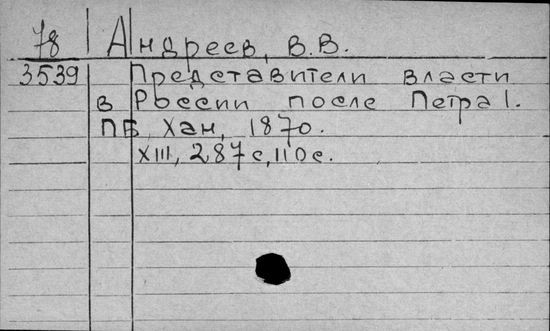 78 Андреев, В.В.
3539 Представители власти
в России после Петра I.
ПБ, Хан, 1870.
XIII, 287 с, 110 с.